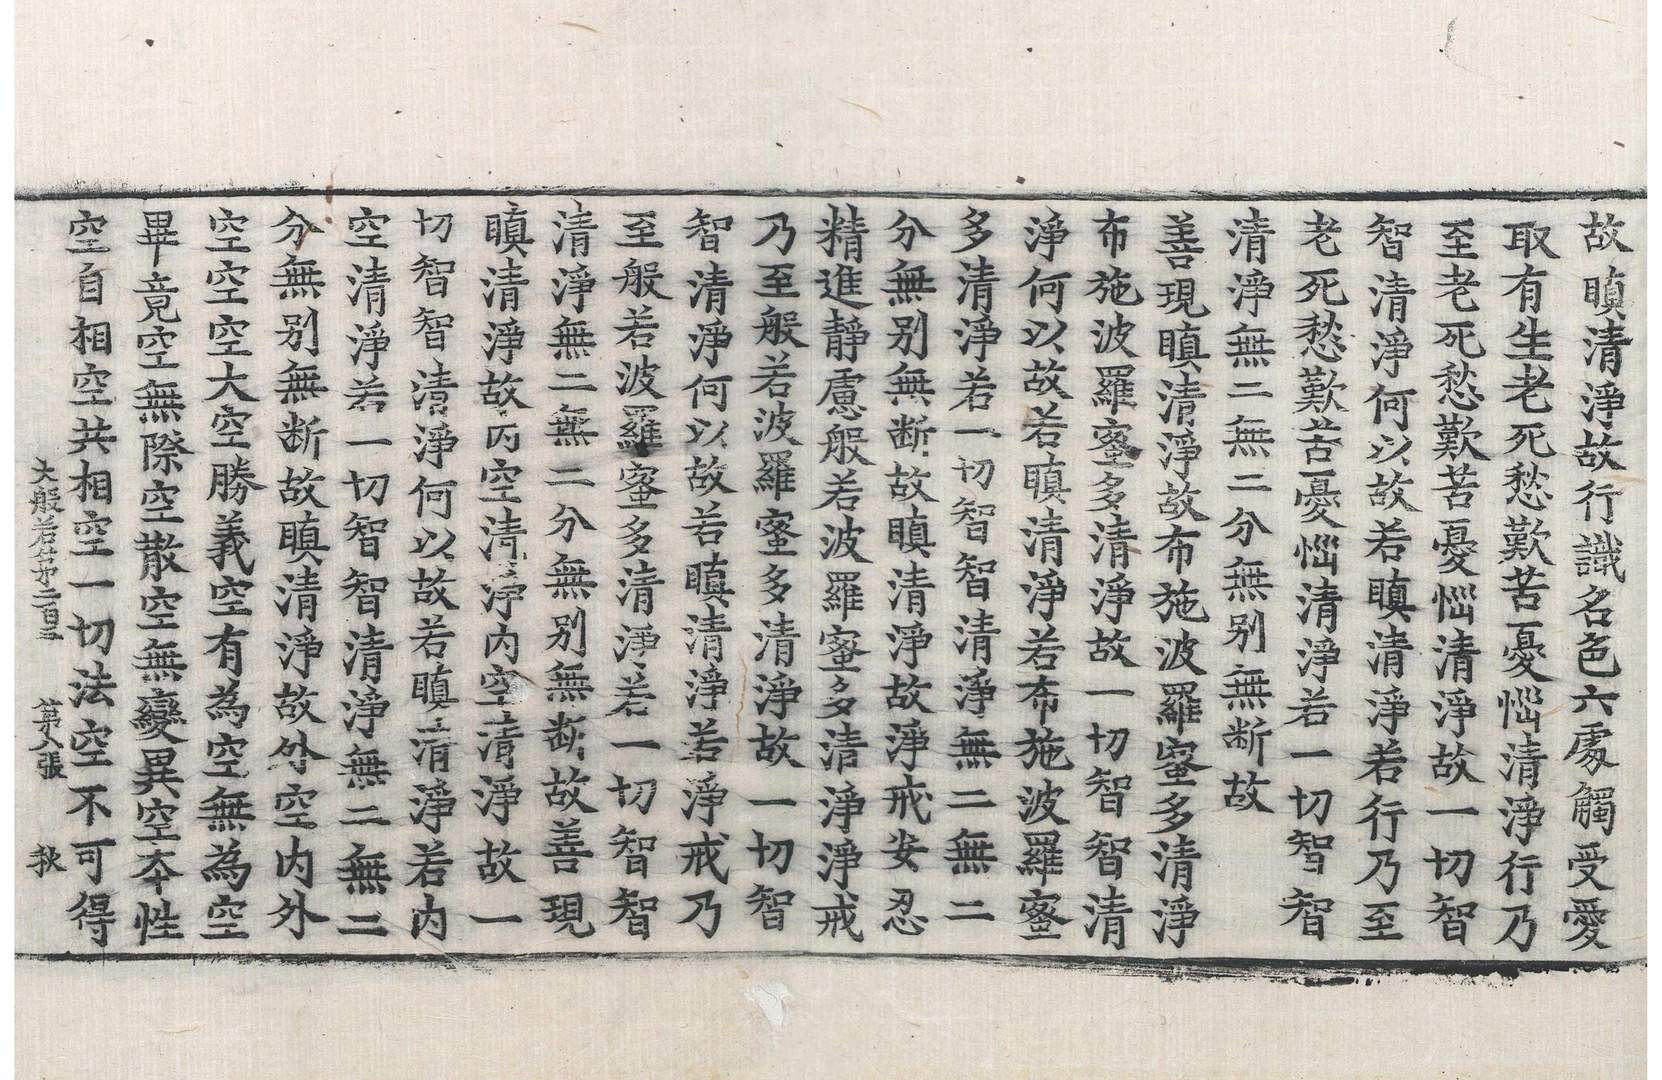 故瞋清淨故行識名色六處觸受愛
取有生老死愁歎苦憂惱清淨行乃
至老死愁歎苦憂惱清淨故一切智
智清淨何以故若瞋清淨若行乃至
老死愁歎苦憂惱清淨若一切智智
清淨無二無二分無別無斷故
善現瞋清淨故布施波羅蜜多清淨
布施波羅蜜多清淨故一切智智清
淨何以故若瞋清淨若布施波羅蜜
多清淨若一切智智清淨無二無二
分無別無斷故瞋清淨故淨戒安忍
精進靜慮般若波羅蜜多清淨淨戒
乃至般若波羅蜜多清淨故一切智
智清淨何以故若瞋清淨若淨戒乃
至般若波羅蜜多清淨若一切智智
清淨無二無二分無別無斷故善現
瞋清淨故內空清淨內空清淨故一
切智智清淨何以故若瞋清淨若內
空清淨若一切智智清淨無二無二
分無別無斷故瞋清淨故外空內外
空空空大空勝義空有為空無為空
畢竟空無際空散空無變異空本性
空自相空共相空一切法空不可得
大般若第二百三 第八張 秋